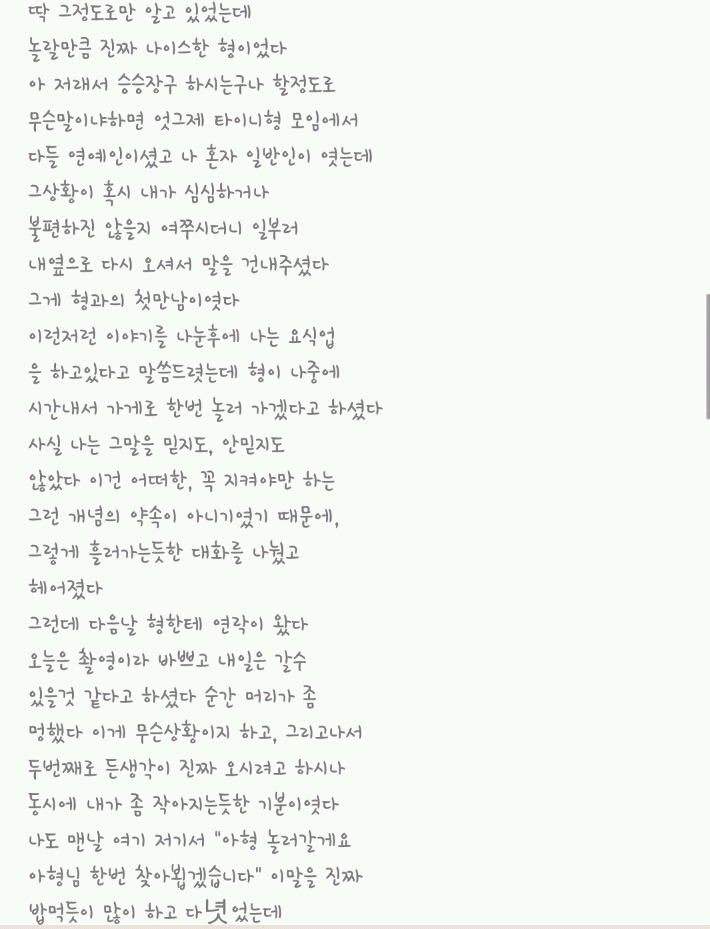 딱 그정도로만 알고 있었는데
놀랄만큼 진짜 나이스한 형이었다
아 저래서 승승장구 하시는구나 할정도로
무슨말이냐하면 엇그제 타이니형 모임에서
다들 연예인이셨고 나 혼자 일반인이 엿는데
그상황이 혹시 내가 심심하거나
불편하진 않을지 여쭈시더니 일부러
내옆으로 다시 오셔서 말을 건내주셨다
그게 형과의 첫만남이엿다
이런저런 이야기를 나눈후에 나는 요식업
을 하고있다고 말씀드렷는데 형이 나중에
시간내서 가게로 한번 놀러 가겠다고 하셨다
사실 나는 그말을 믿지도, 안믿지도
않았다 이건 어떠한, 꼭 지켜야만 하는
그런 개념의 약속이 아니기였기 때문에,
그렇게 흘러가는듯한 대화를 나눴고
헤어졌다
그런데 다음날 형한테 연락이 왔다
오늘은 촬영이라 바쁘고 내일은 갈수
있을것 같다고 하셨다 순간 머리가 좀
멍했다 이게 무슨상황이지 하고, 그리고나서
두번째로 든생각이 진짜 오시려고 하시나
동시에 내가 좀 작아지는듯한 기분이엿다
나도 맨날 여기 저기서 "아형 놀러갈게요
아형님 한번 찾아뵙겠습니다" 이말을 진짜
밥먹듯이 많이 하고 다녓었는데